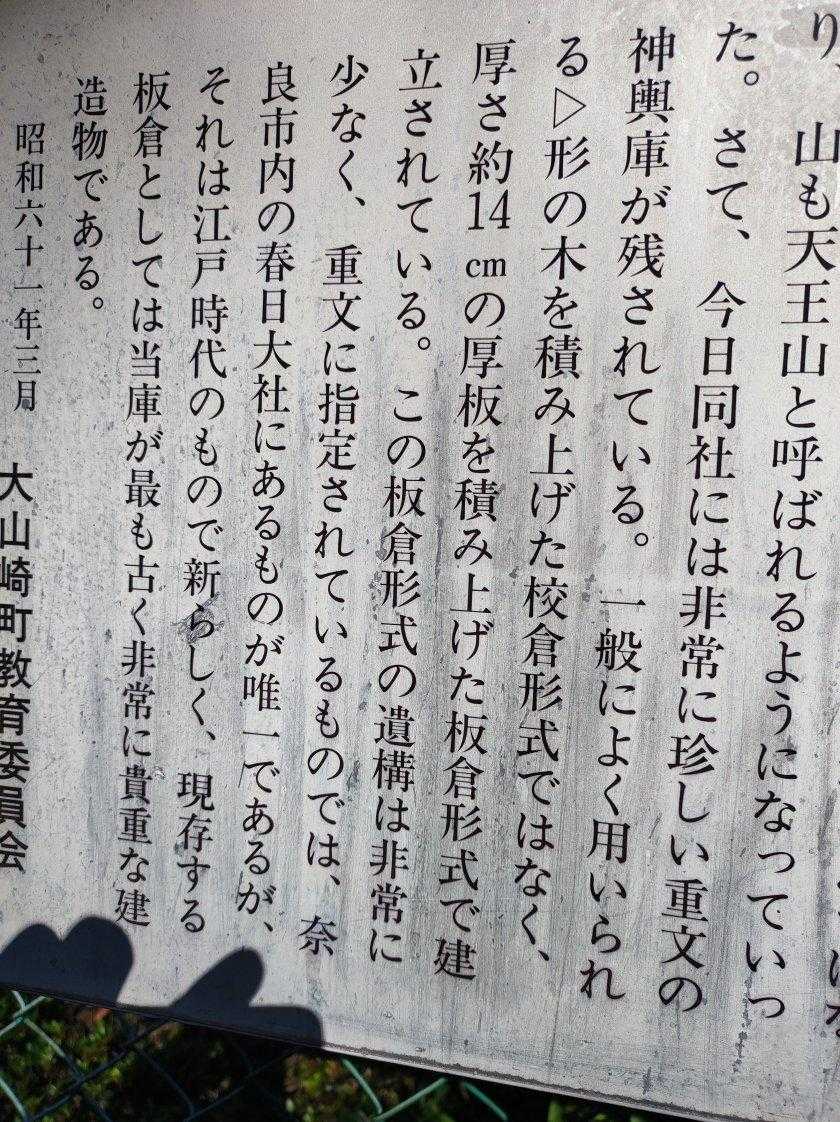 り、山も天王山と呼ばれるようになっていっ
た。さて、今日同社には非常に珍しい重文の
神輿庫が残されている。一般によく用いられ
る▷形の木を積み上げた校倉形式ではなく、
厚さ約14cmの厚板を積み上げた板倉形式で建
立されている。この板倉形式の遺構は非常に
少なく、重文に指定されているものでは、奈
良市内の春日大社にあるものが唯一であるが、
それは江戸時代のもので新らしく、現存する
板倉としては当庫が最も古く非常に貴重な建
造物である。
昭和六十一年三月
大山崎町教育委員会